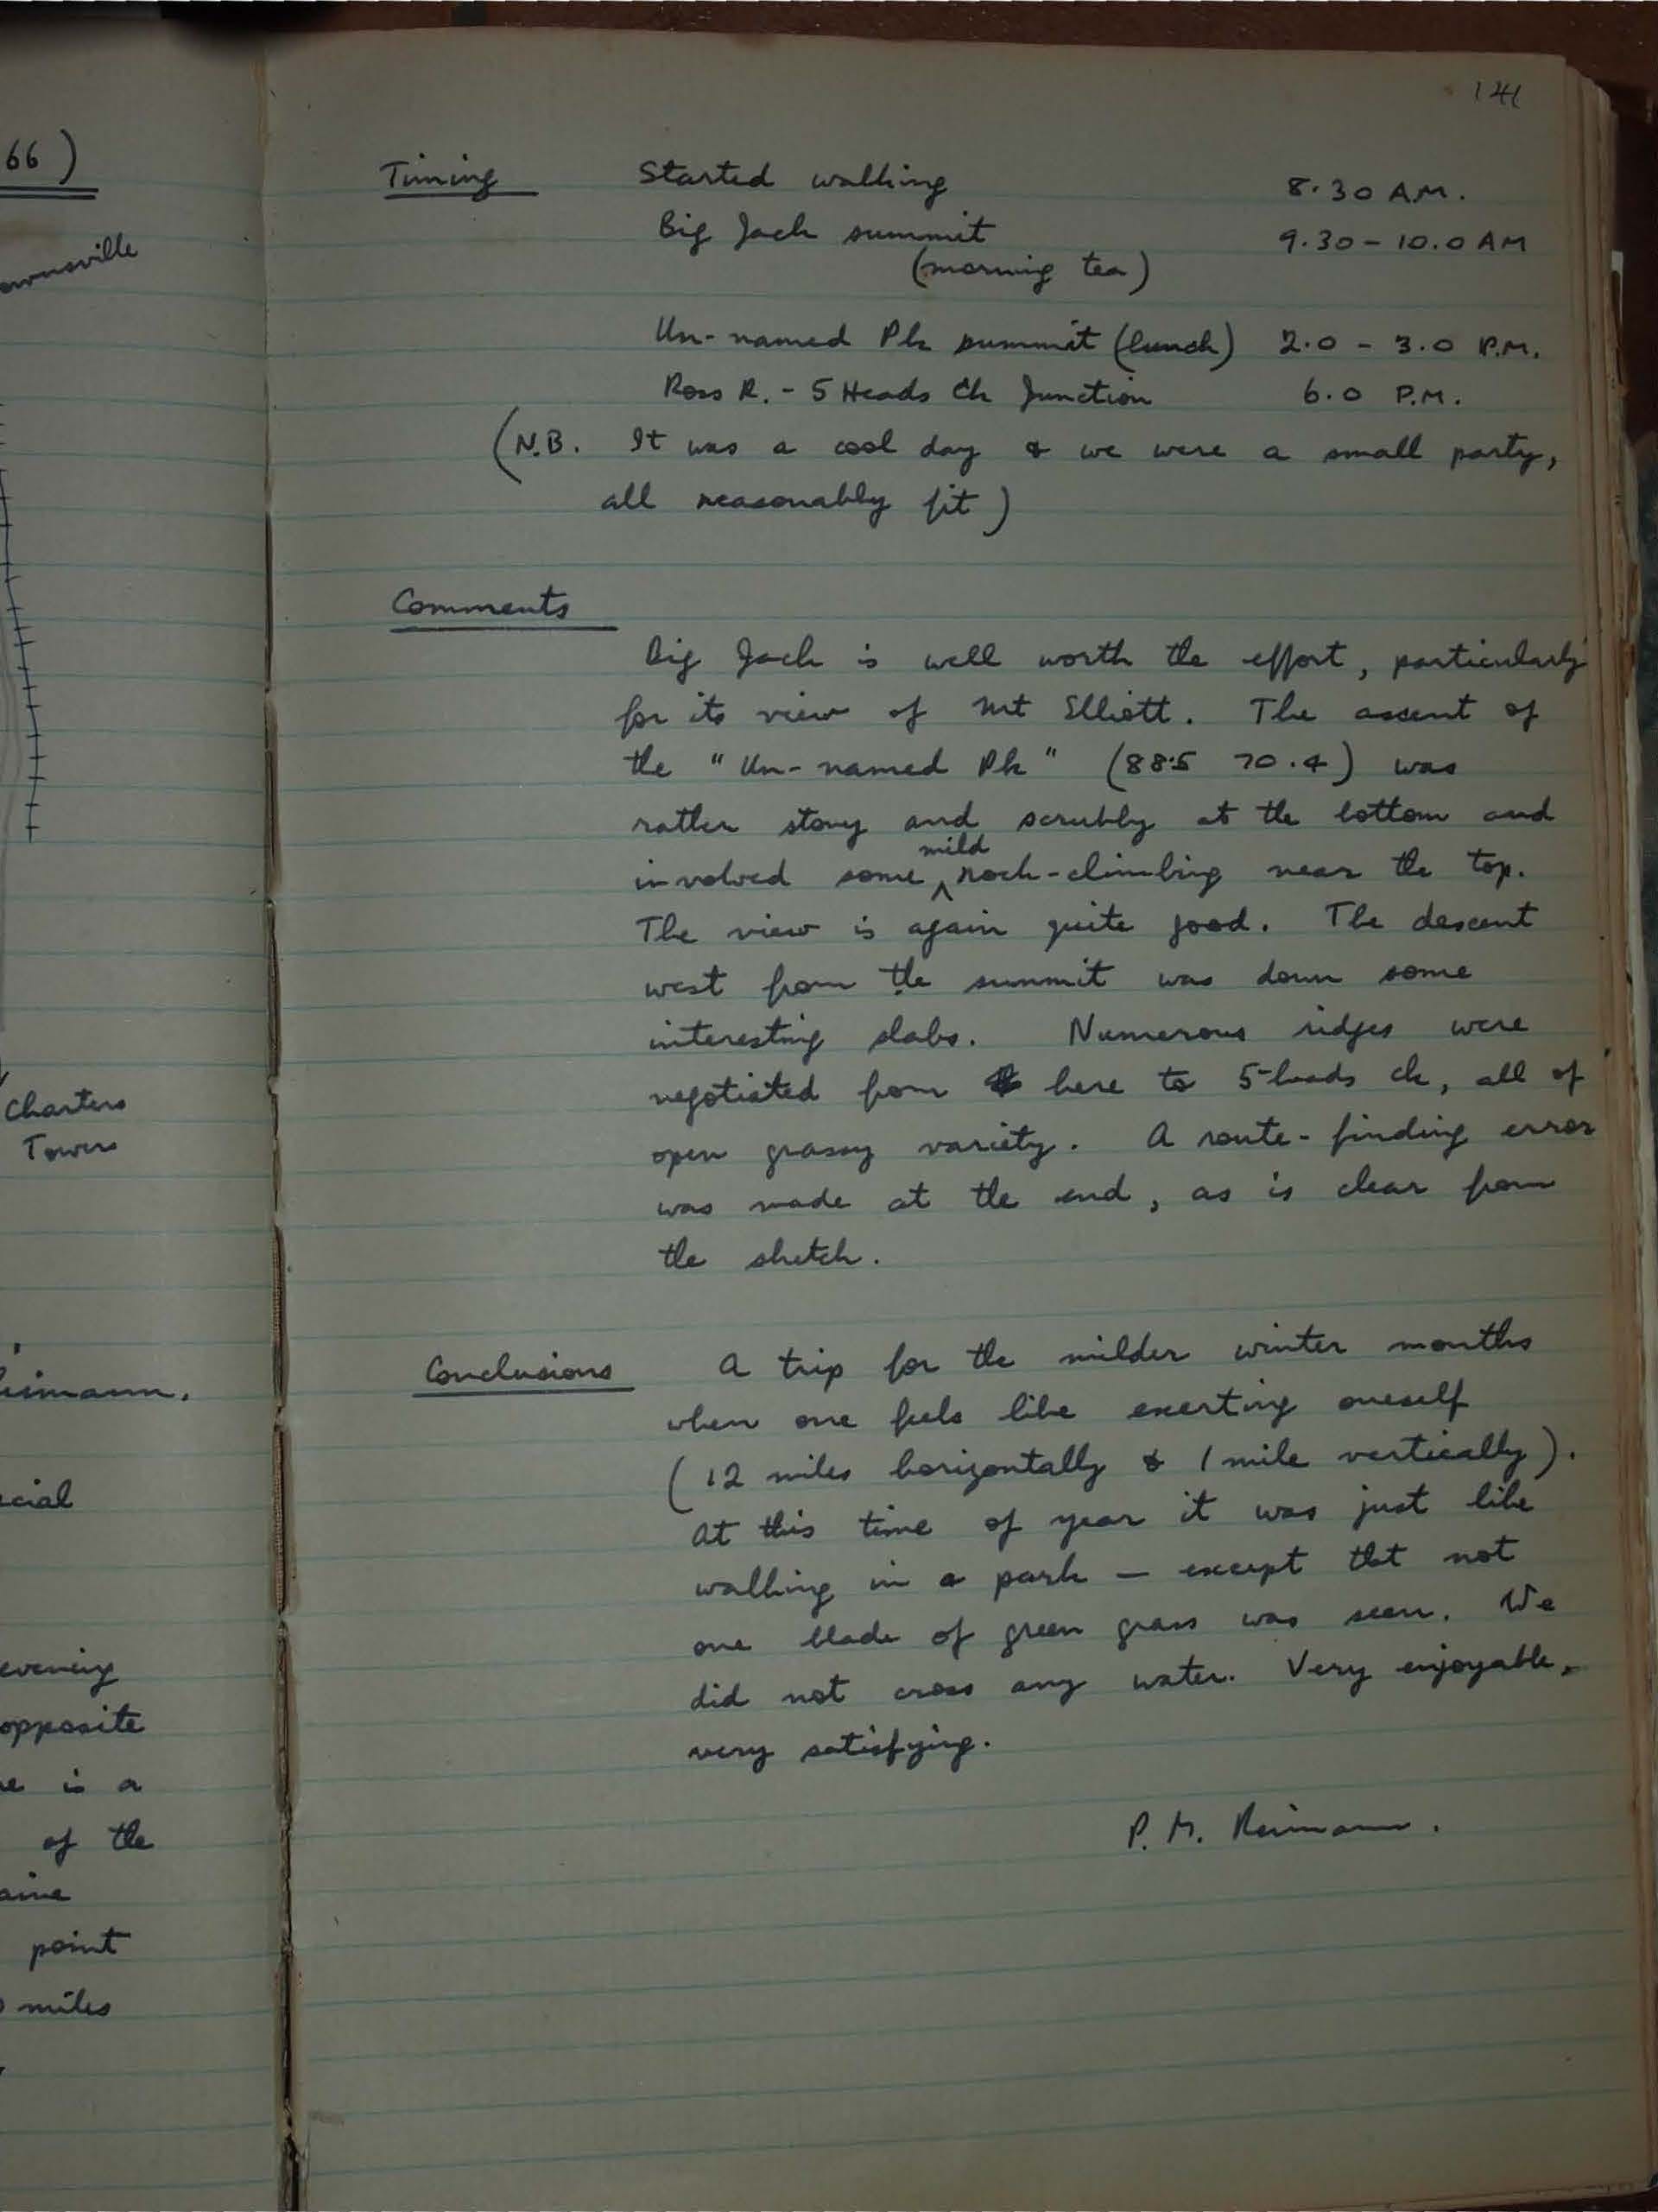 66)
ownsville
Charters
Towers
eimann.
ecial
evening
opposite
re is a
of the
aine
point
miles
141
Timing Started walking 8.30 A.M.
Big Jack summit 9.30 - 10.0 AM
(morning tea)
Un-named Pk summit (lunch) 2.0 - 3.0 P.M.
Ross R. - 5 Heads Ck Junction 6.0 P.M.
(N.B. It was a cool day & we were a small party,
all reasonably fit)
Comments
Big Jack is well worth the effort, particularly
for its view of Mt Elliott. The ascent of
the "Un-named Pk" (88.5 70.4) was
rather stony and scrubby at the bottom and
involved some mild rock-climbing near the top.
The view is again quite good. The descent
west from the summit was down some
interesting slabs. Numerous ridges were
negotiated from here to 5-heads ck, all of
open grassy variety. A route-finding error
was made at the end, as is clear from
the sketch.
Conclusions A trip for the milder winter months
when one feels like exerting oneself
(12 miles horizontally & 1 mile vertically).
At this time of year it was just like
walking in a park — except that not
one blade of green grass was seen. We
did not cross any water. Very enjoyable,
very satisfying.
P. M. Reimann.